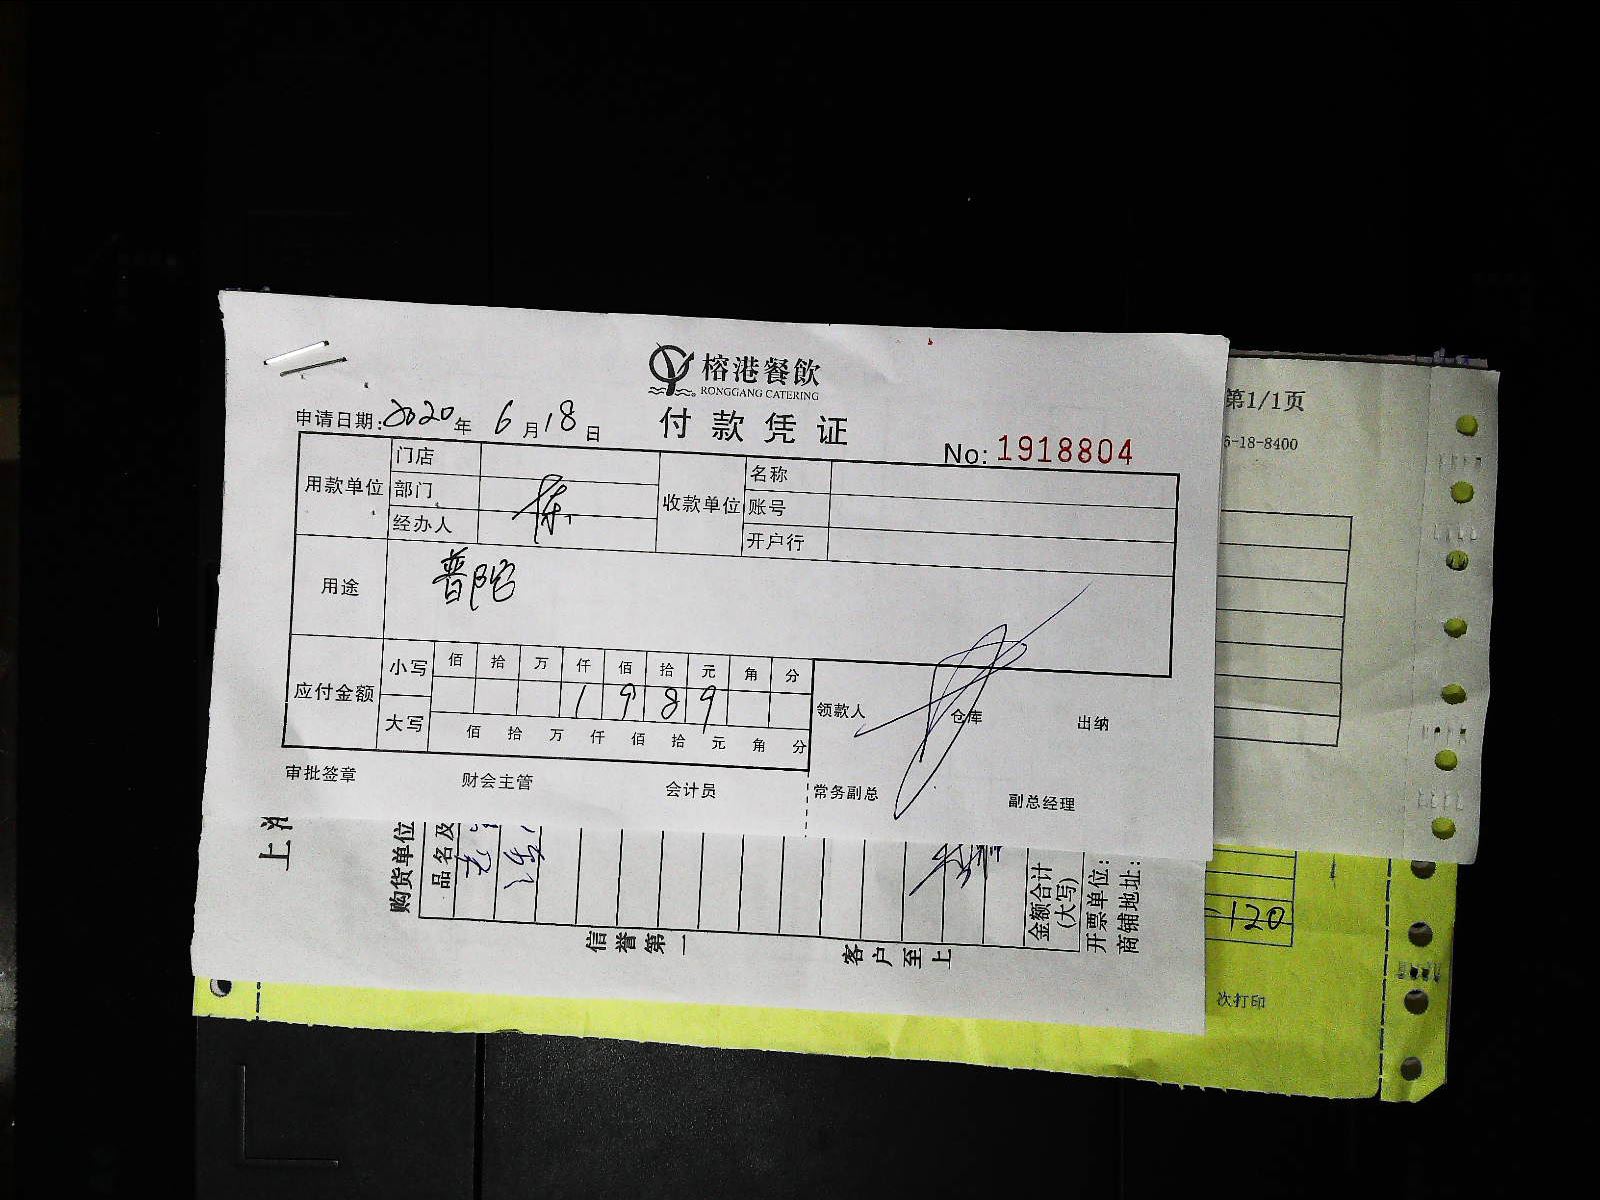 榕港餐飲
RONGGANG CATERING
付款凭证
申请日期:2020年6月18日
No:1918804
用款单位
门店
部门
经办人 陈
收款单位
名称
账号
开户行
用途 普陀
应付金额
小写 佰 拾 万 仟 佰 拾 元 角 分
1 9 8 9
大写 佰 拾 万 仟 佰 拾 元 角 分
领款人 仓库 出纳
审批签章 财会主管 会计员 常务副总 副总经理
第1/1页
6-18-8400
上
购货单位
品名及
信誉第一
客户至上
金额合计
(大写)
开票单位:
商铺地址:
120
次打印